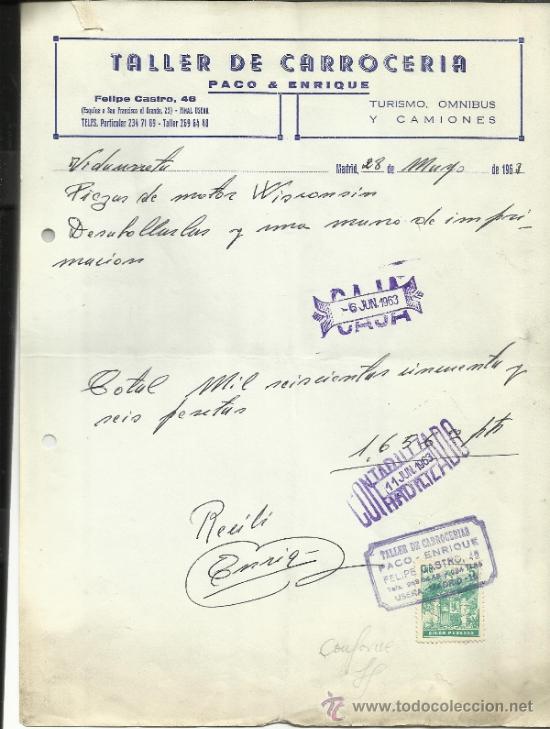 TALLER DE CARROCERIA
PACO & ENRIQUE
Felipe Castro, 46
(Esquina a San Francisco el Grande, 23) - FINAL USERA
TELFS. Particular 234 71 69 - Taller 269 64 48
TURISMO, OMNIBUS
Y CAMIONES
Vidaurreta
Madrid, 28 de Mayo de 1963
Piezas de motor Wisconsin
Desabollarlas y una mano de impri-
macion
CAJA
-6 JUN. 1963
CAJA
Total Mil seiscientas cincuenta y
seis pesetas
1.656 pts
CONTABILIZADO
11 JUN 1963
CONTABILIZADO
Recibi
Enriq
TALLER DE CARROCERIAS
PACO - ENRIQUE
FELIPE CASTRO, 46
USERA - MADRID
Conforme
todocoleccion.net